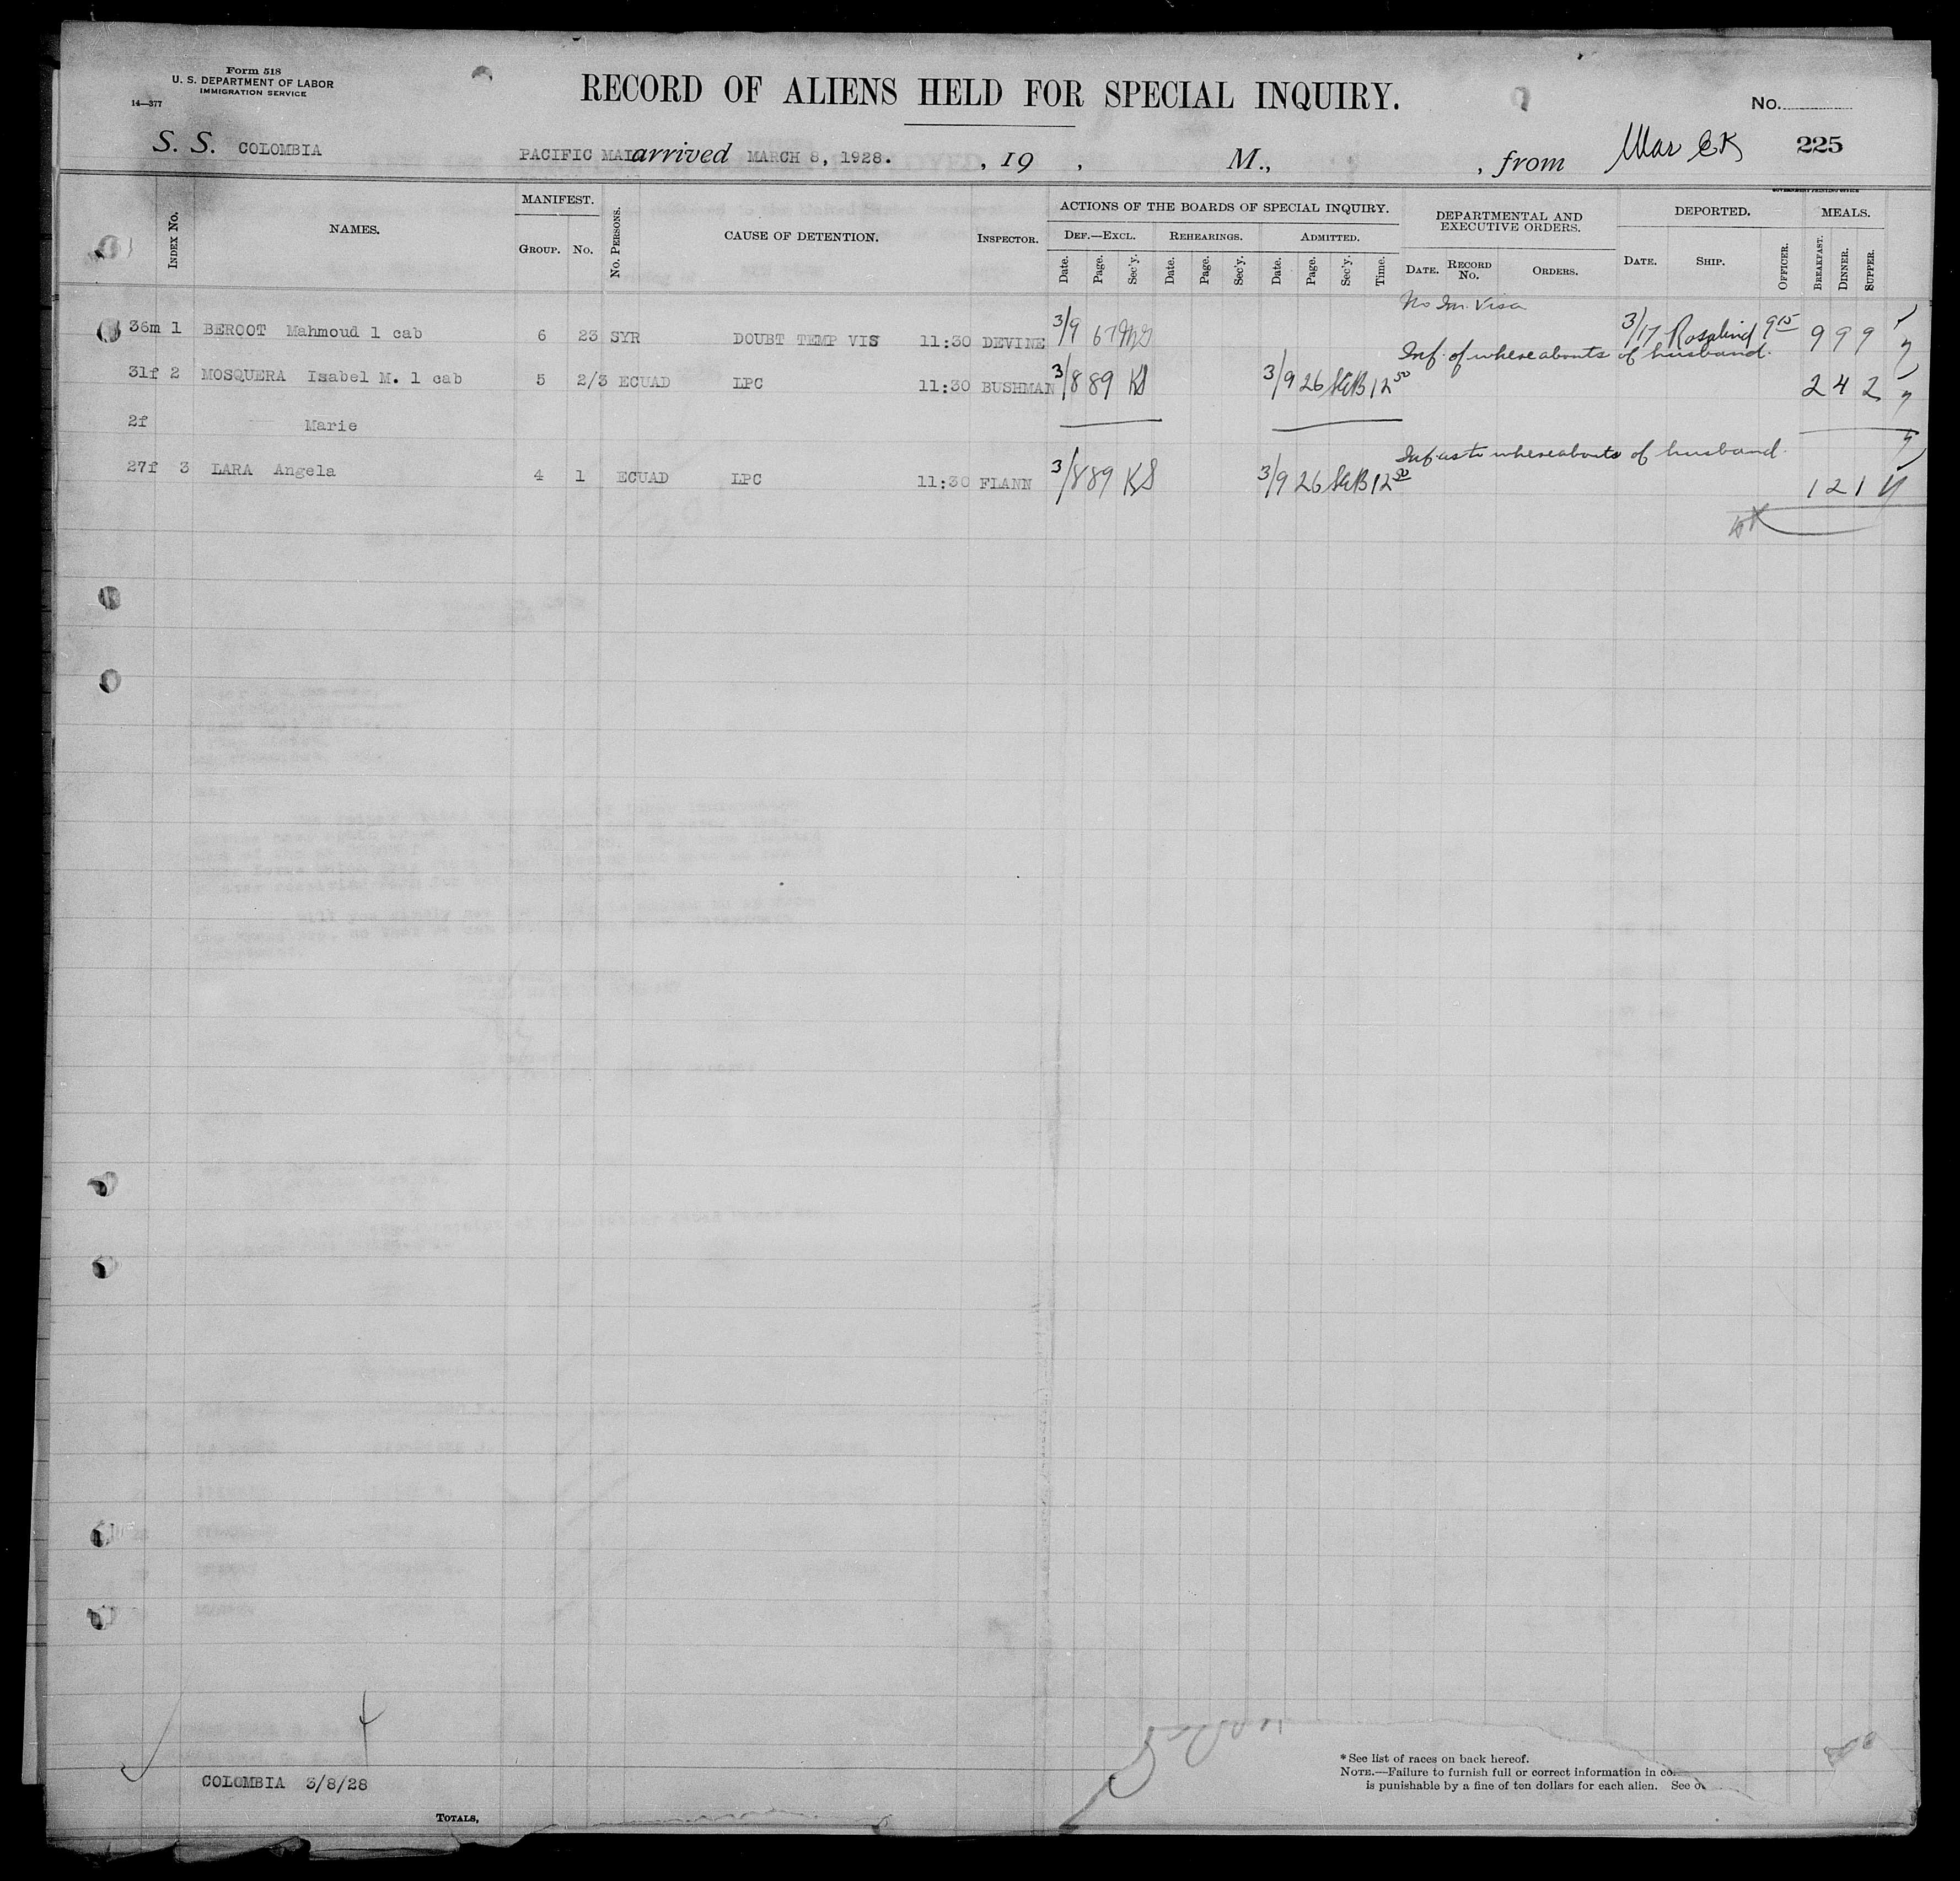 Form 518
U. S. DEPARTMENT OF LABOR
IMMIGRATION SERVICE
14—377
RECORD OF ALIENS HELD FOR SPECIAL INQUIRY.
No.
S. S. COLOMBIA PACIFIC MAIL arrived MARCH 8, 1928. , 19 , M., , from 225
GOVERNMENT PRINTING OFFICE
INDEX No. NAMES. MANIFEST. GROUP. No. No. PERSONS. CAUSE OF DETENTION. INSPECTOR.
ACTIONS OF THE BOARDS OF SPECIAL INQUIRY.
DEF.—EXCL. REHEARINGS. ADMITTED.
Date. Page. Sec'y. Date. Page. Sec'y. Date. Page. Sec'y. Time.
DEPARTMENTAL AND
EXECUTIVE ORDERS.
DATE. RECORD No. ORDERS.
DEPORTED.
DATE. SHIP. OFFICER.
MEALS.
BREAKFAST. DINNER. SUPPER.
No Im. Visa
36m 1 BEROOT Mahmoud 1 cab 6 23 SYR DOUBT TEMP VIS 11:30 DEVINE 3/9 67 3/17 Rosalind 9 15 9 9 9
Inf. of whereabouts of husband.
31f 2 MOSQUERA Isabel M. 1 cab 5 2/3 ECUAD LPC 11:30 BUSHMAN 3/8 89 KS 3/9 26 12 50 2 4 2
2f Marie
Inf as to whereabouts of husband.
27f 3 LARA Angela 4 1 ECUAD LPC 11:30 FLANN 3/8 89 KS 3/9 26 12 1 2 1
* See list of races on back hereof.
NOTE.—Failure to furnish full or correct information in
is punishable by a fine of ten dollars for each alien. See
COLOMBIA 3/8/28
TOTALS,